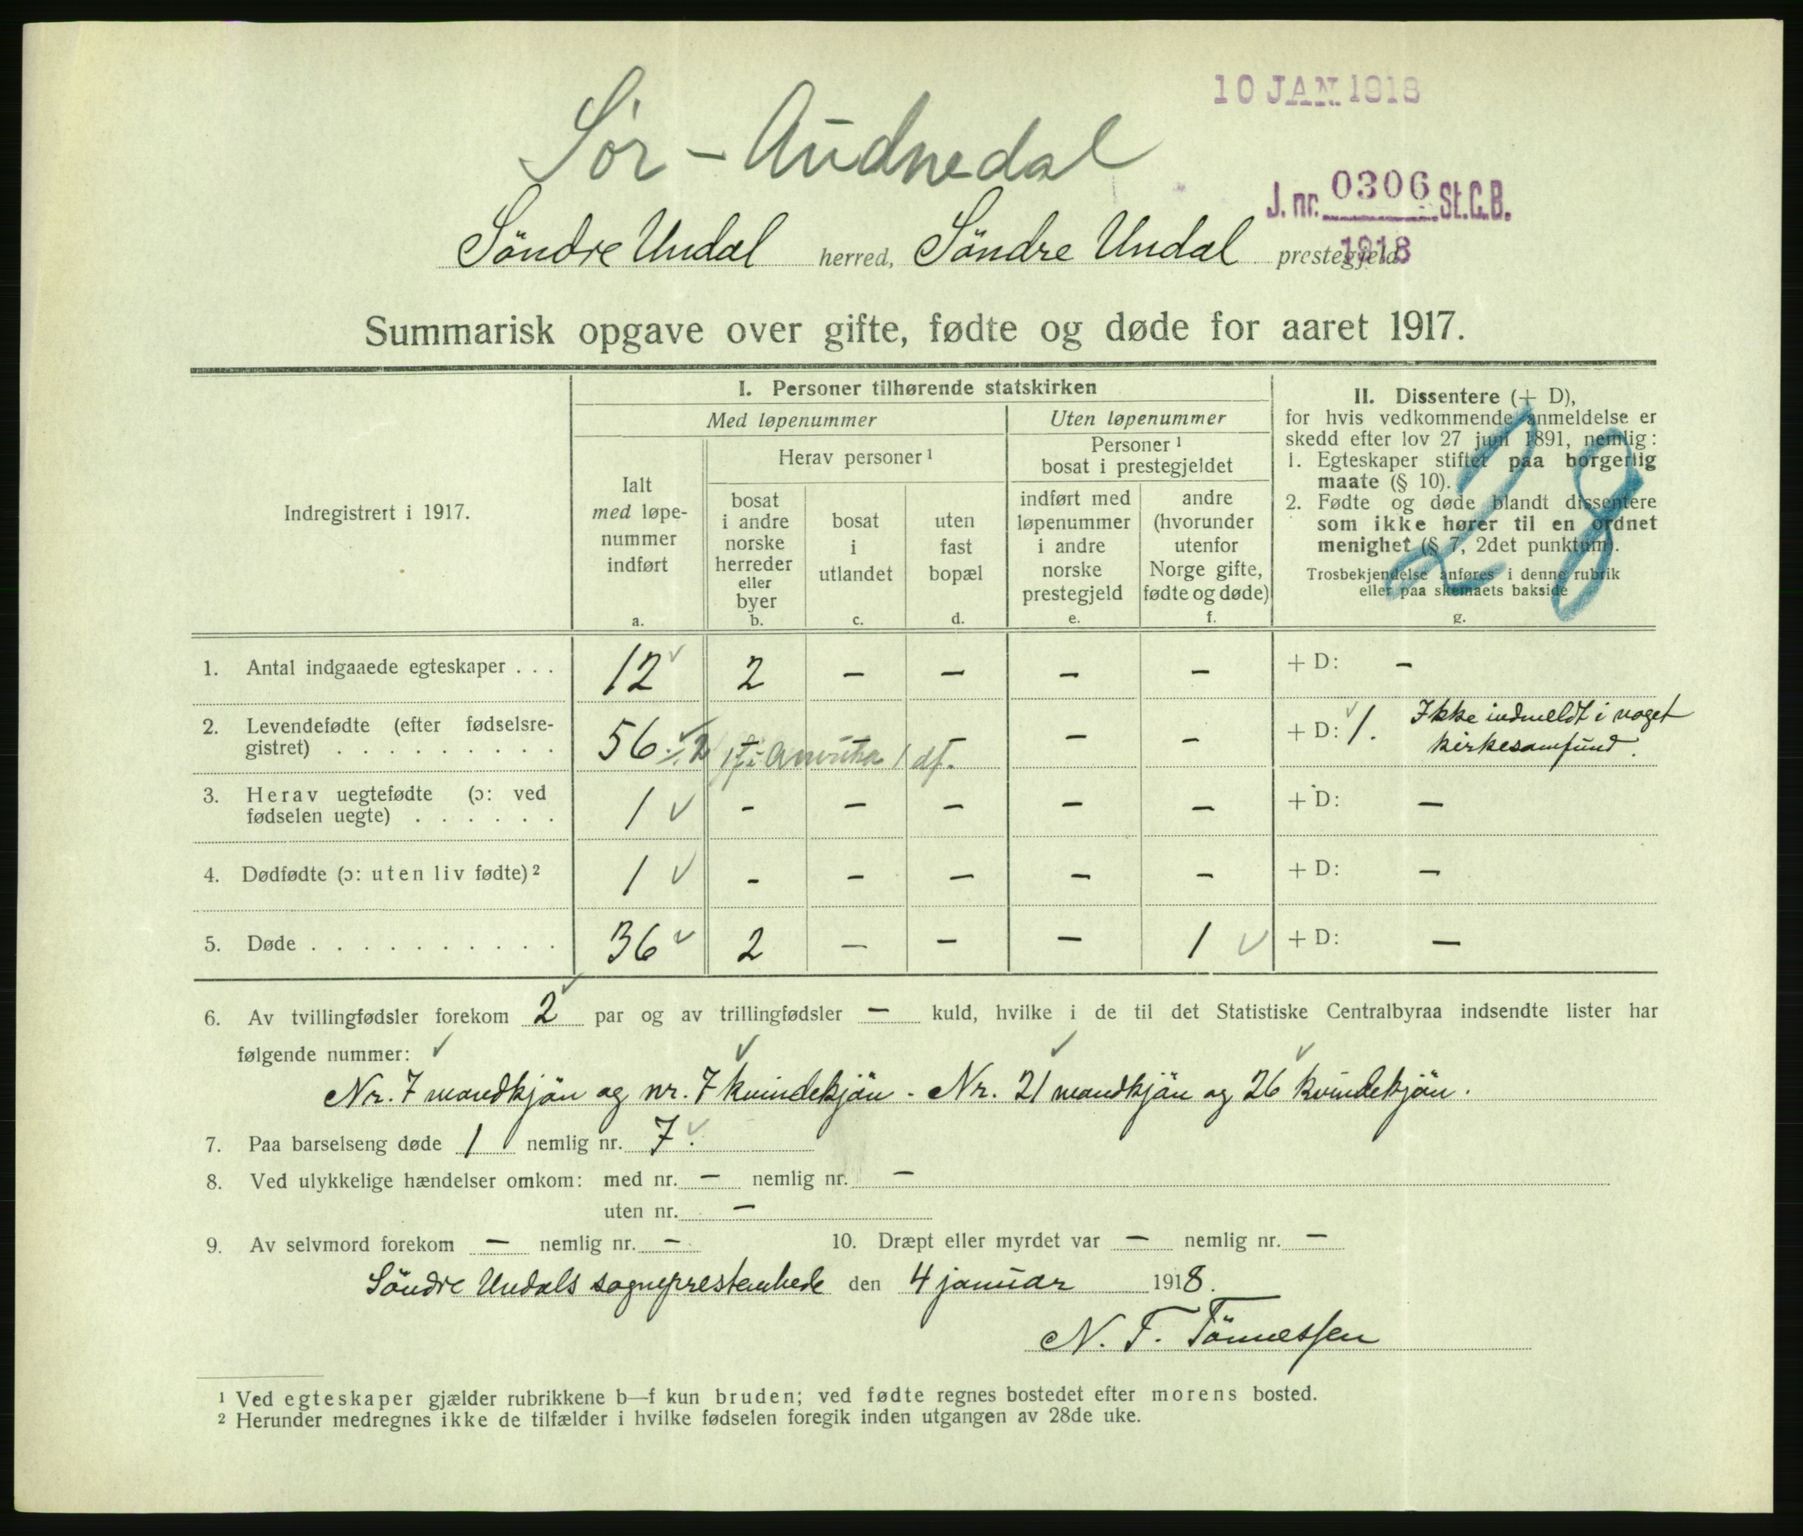 10 JAN 1918
Sør - Audnedal
J. nr. 0306 St.C.B.
1918
Söndre Undal herred, Söndre Undal prestegjeld.
Summarisk opgave over gifte, fødte og døde for aaret 1917.
Indregistrert i 1917.
I. Personer tilhørende statskirken
Med løpenummer
Uten løpenummer
Ialt
med løpe-
nummer
indført
a.
Herav personer ¹
bosat
i andre
norske
herreder
eller
byer
b.
bosat
i
utlandet
c.
uten
fast
bopæl
d.
Personer ¹
bosat i prestegjeldet
indført med
løpenummer
i andre
norske
prestegjeld
e.
andre
(hvorunder
utenfor
Norge gifte,
fødte og døde)
f.
II. Dissentere (+ D),
for hvis vedkommende anmeldelse er
skedd efter lov 27 juni 1891, nemlig:
1. Egteskaper stiftet paa borgerlig
maate (§ 10).
2. Fødte og døde blandt dissentere
som ikke hører til en ordnet
menighet (§ 7, 2det punktum).
Trosbekjendelse anføres i denne rubrik
eller paa skemaets bakside
g.
28
1. Antal indgaaede egteskaper . . . 12 ✓ 2 — — — — + D: —
2. Levendefødte (efter fødselsre-
gistret) . . . . . . . . . 56 ✓ 1 f. i Amerika 1 df. — — + D: ✓ 1. Ikke indmeldt i noget
kirkesamfund.
3. Herav uegtefødte (ɔ: ved
fødselen uegte) . . . . . . 1 ✓ — — — — — + D: —
4. Dødfødte (ɔ: uten liv fødte) ² 1 ✓ — — — — — + D: —
5. Døde . . . . . . . . . . 36 ✓ 2 — — — 1 ✓ + D: —
6. Av tvillingfødsler forekom 2 ✓ par og av trillingfødsler — kuld, hvilke i de til det Statistiske Centralbyraa indsendte lister har
følgende nummer: ✓ ✓ ✓ ✓
Nr. 7 mandkjön og nr. 7 kvindekjön. Nr. 21 mandkjön og 26 kvindekjön.
7. Paa barselseng døde 1 nemlig nr. 7 ✓.
8. Ved ulykkelige hændelser omkom: med nr. — nemlig nr. —
uten nr. —
9. Av selvmord forekom — nemlig nr. — 10. Dræpt eller myrdet var — nemlig nr. —
Söndre Undals sogneprestembede den 4 januar 1918.
N. F. Tönnessen
¹ Ved egteskaper gjælder rubrikkene b—f kun bruden; ved fødte regnes bostedet efter morens bosted.
² Herunder medregnes ikke de tilfælder i hvilke fødselen foregik inden utgangen av 28de uke.